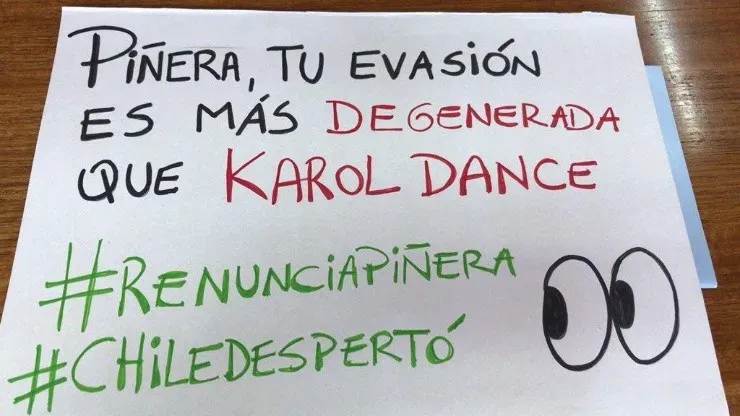 PIÑERA, TU EVASIÓN
ES MÁS DEGENERADA
QUE KAROL DANCE
#RENUNCIAPIÑERA
#CHILEDESPERTÓ